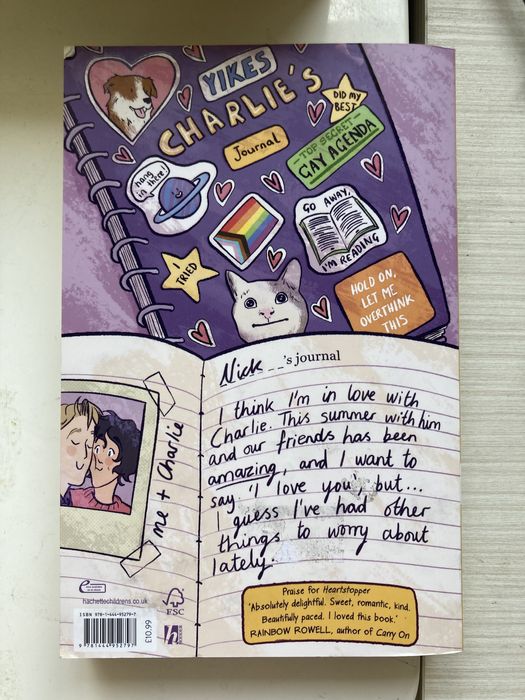 YIKES
CHARLIE'S
Journal
DID MY
BEST
TOP SECRET
GAY AGENDA
hang
in there!
GO AWAY,
I'M READING
I
TRIED
HOLD ON,
LET ME
OVERTHINK
THIS
Nick _ _'s journal
I think I'm in love with
Charlie. This summer with him
and our friends has been
amazing, and I want to
say 'I love you', but...
I guess I've had other
things to worry about
lately.
me + Charlie
hachettechildrens.co.uk
FSC
ISBN 978-1-444-95279-7
9 781444 952797
66103
h
Praise for Heartstopper
'Absolutely delightful. Sweet, romantic, kind.
Beautifully paced. I loved this book.'
RAINBOW ROWELL, author of Carry On